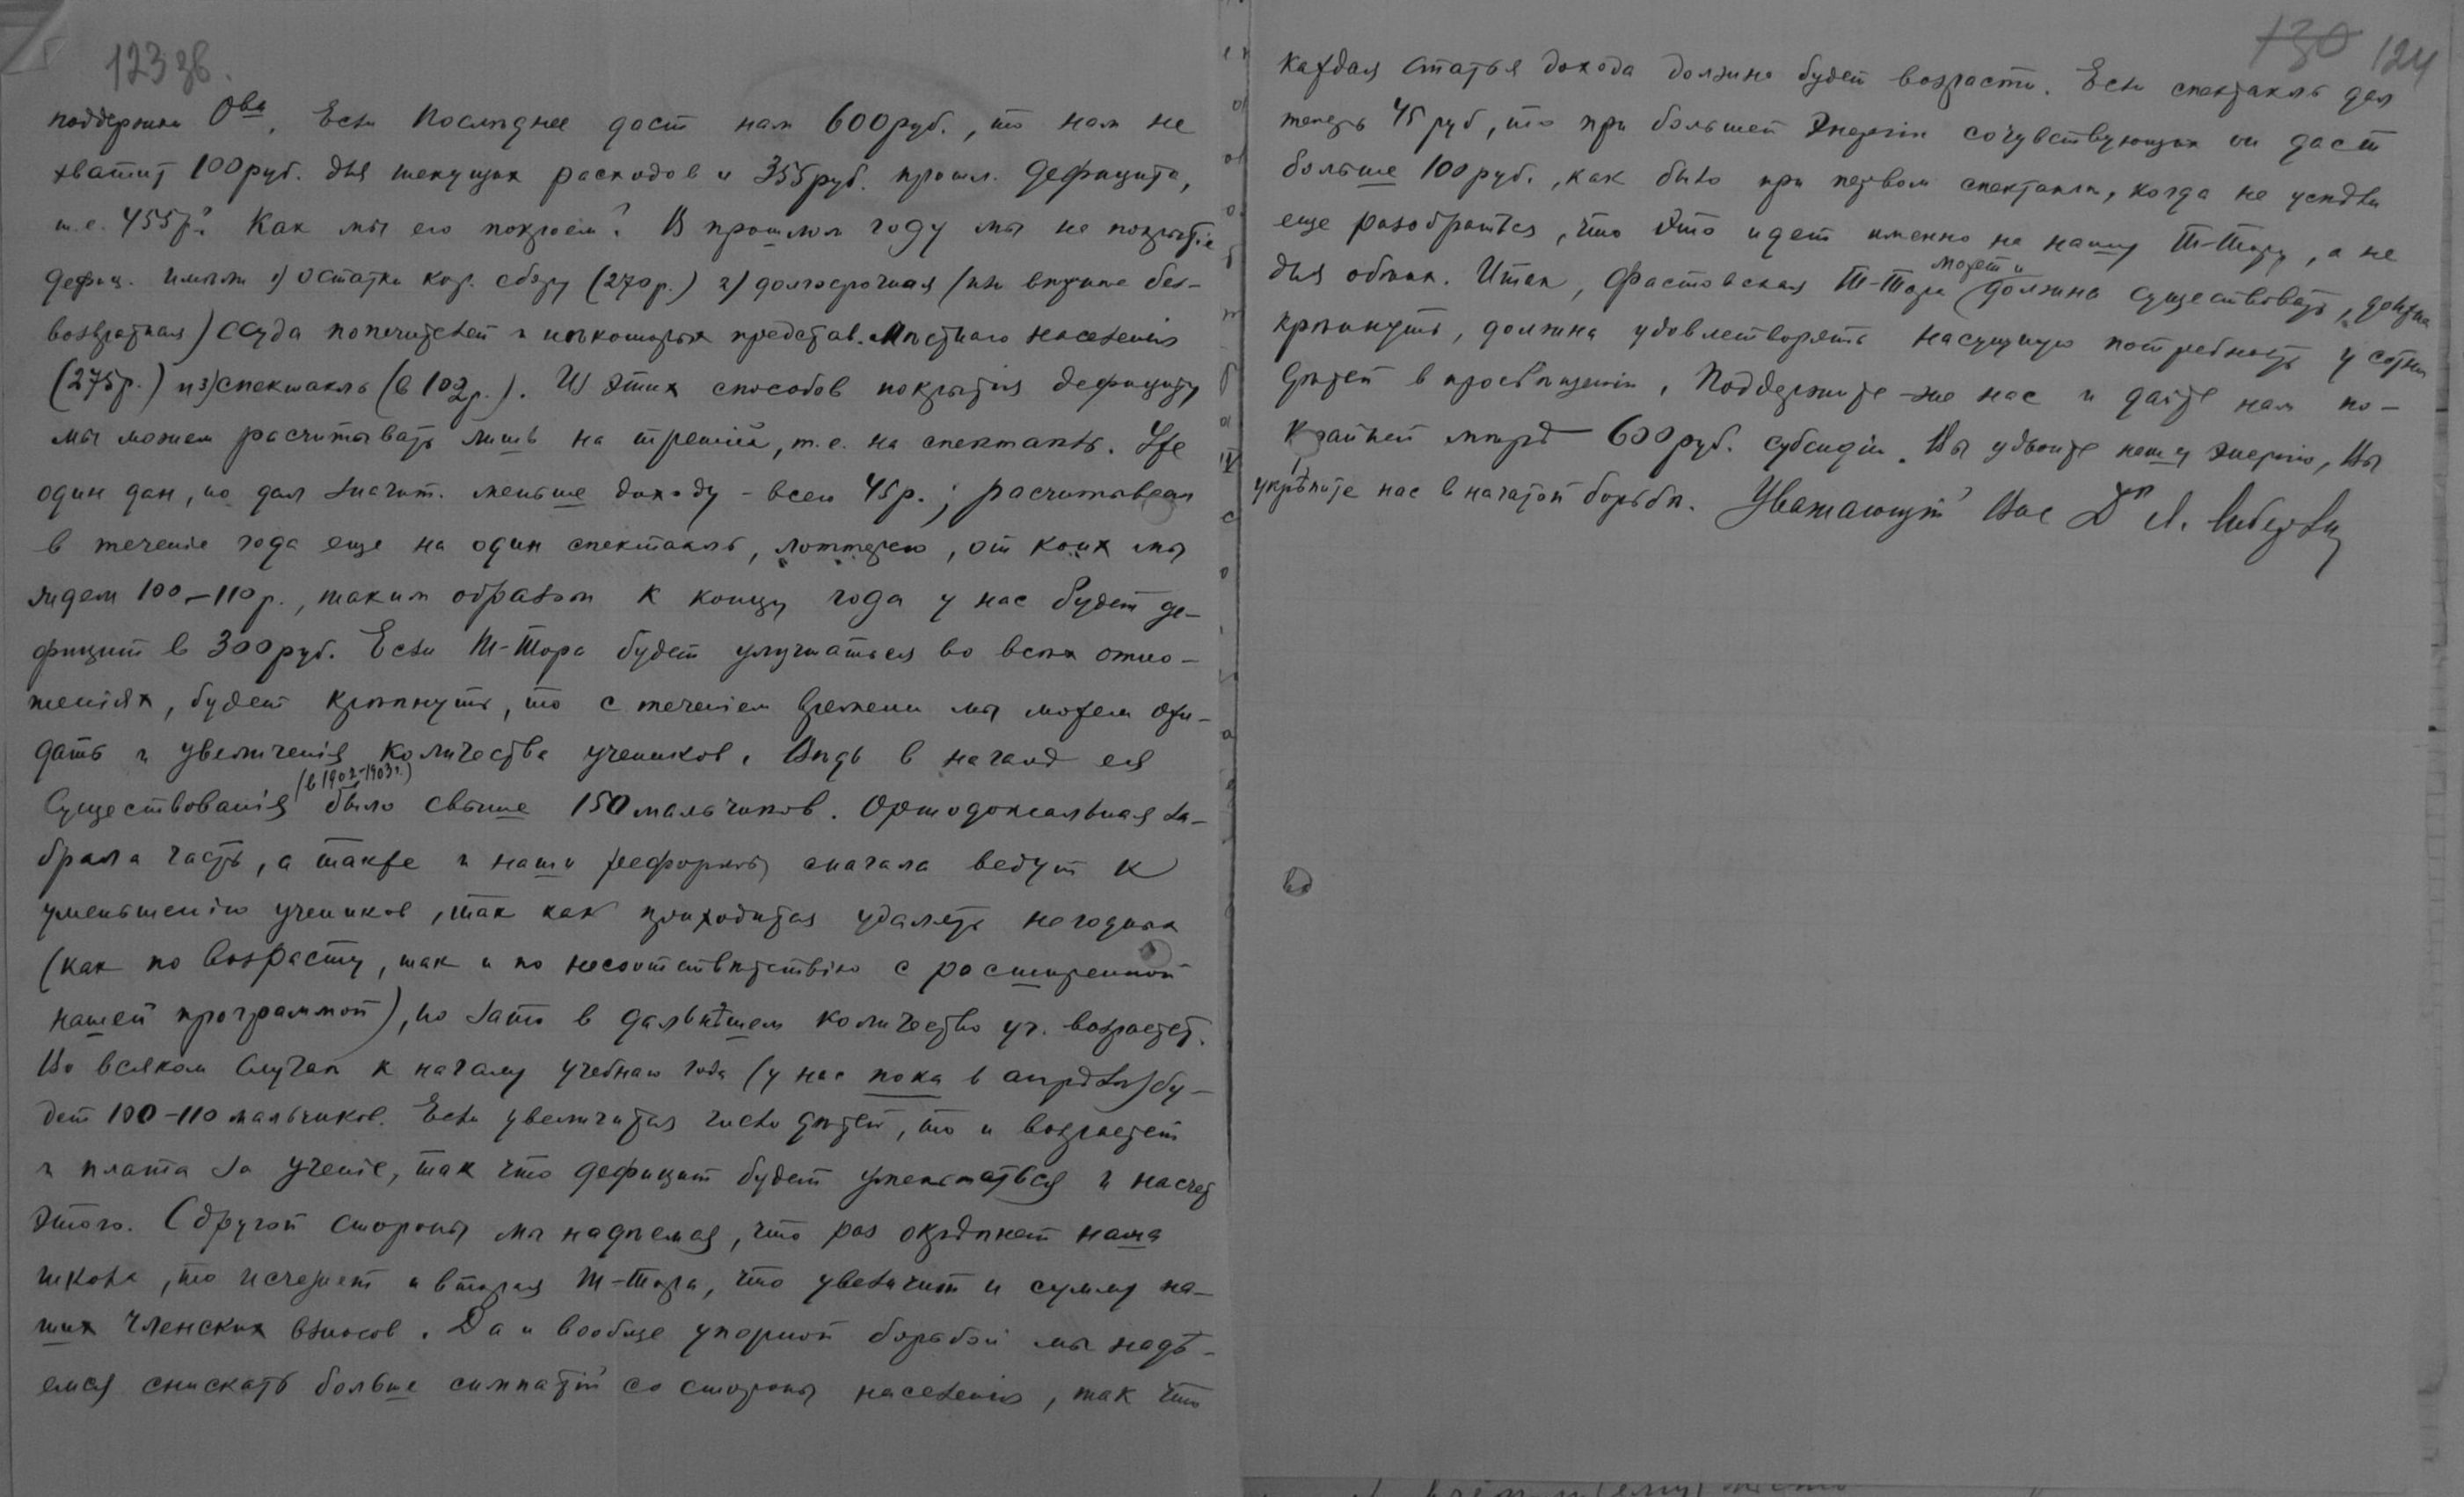 123 зв.
поддержки О-ва. Если последнее даст нам 600 руб., то нам не
хватит 100 руб. для текущих расходов и 355 руб. прошл. дефицита,
т.е. 455 р. Как мы его покроем? В прошлом году мы на покрытіе
дефиц. имѣли 1) остатки кор. сбору (270 р.) 2) долгосрочная (или вѣрнѣе без-
возвратная) ссуда попечителей и нѣкоторых представ. мѣстнаго населенія
(275 р.) и 3) спектакль (в 102 р.). Из этих способов покрытія дефициту
мы можем расчитывать лишь на третій, т.е. на спектакль. Уже
один дан, но дал значит. меньше доходу – всего 45 р.; расчитываем
в теченіе года еще на один спектакль, лоттерею, от коих мы
ждем 100–110 р., таким образом к концу года у нас будет де-
фицит в 300 руб. Если Т-Тора будет улучшаться во всѣх отно-
шеніях, будет крѣпнуть, то с теченіем времени мы можем ожи-
дать и увеличенія количества учеников. Вѣдь в началѣ ея
существованія (в 1902–1903 г.) было свыше 150 мальчиков. Ортодоксальная за-
брала часть, а также и наши реформы сначала ведут к
уменьшенію учеников, так как приходится удалять негодных
(как по возрасту, так и по несоотвѣтствію с расширенной
нашей программой), но зато в дальнѣйшем количество уч. возрастет.
Во всяком случаѣ к началу учебнаго года (у нас пока в апрѣлѣ) бу-
дет 100–110 мальчиков. Если увеличится число дѣтей, то и возрастет
и плата за ученіе, так что дефицит будет уменьшаться и насчет
этого. С другой стороны мы надѣемся, что раз окрѣпнет наша
школа, то исчезнет и вторая Т-Тора, что увеличит и сумму на-
ших членских взносов. Да и вообще упорной борьбой мы надѣ-
емся снискать больше симпатій со стороны населенія, так что
130 124
каждая статья дохода должна будет возрасти. Если спектакль дал
теперь 45 руб, то при большей энергіи сочувствующих он даст
больше 100 руб., как было при первом спектаклѣ, когда не успѣли
еще разобраться, что это идет именно на нашу Т-Тору, а не
для общин. Итак, Фастовская Т-Тора может и должна существовать, должна
крѣпнуть, должна удовлетворять насущную потребность у сотни
дѣтей в просвѣщеніи. Поддержите-же нас и дайте нам по-
крайней мѣрѣ 600 руб. субсидіи. Вы удвоите нашу энергію, Вы
укрѣпите нас в начатой борьбѣ. Уважающій Вас Д-р Л.